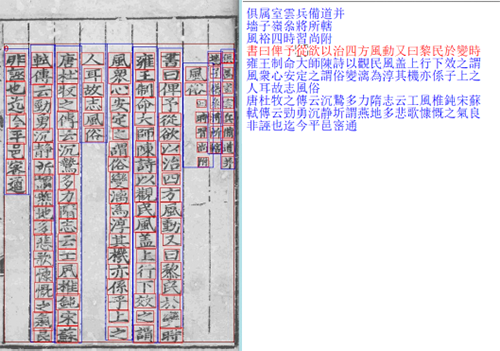 俱属室雲兵備道并
墙子嶺叅將所轄
風裕四時習尚附
書曰俾予從欲以治四方風動又曰黎民於變時
雍王制命大師陳詩以觀民風盖上行下效之謂
風衆心安定之謂俗變漓為淳其機亦係予上之
人耳故志風俗
唐杜牧之傳云沉鷙多力隋志云工風椎鈍宋蘇
軾傳云勁勇沉静圻謂燕地多悲歌慷慨之氣良
非誣也迄今平邑窑通